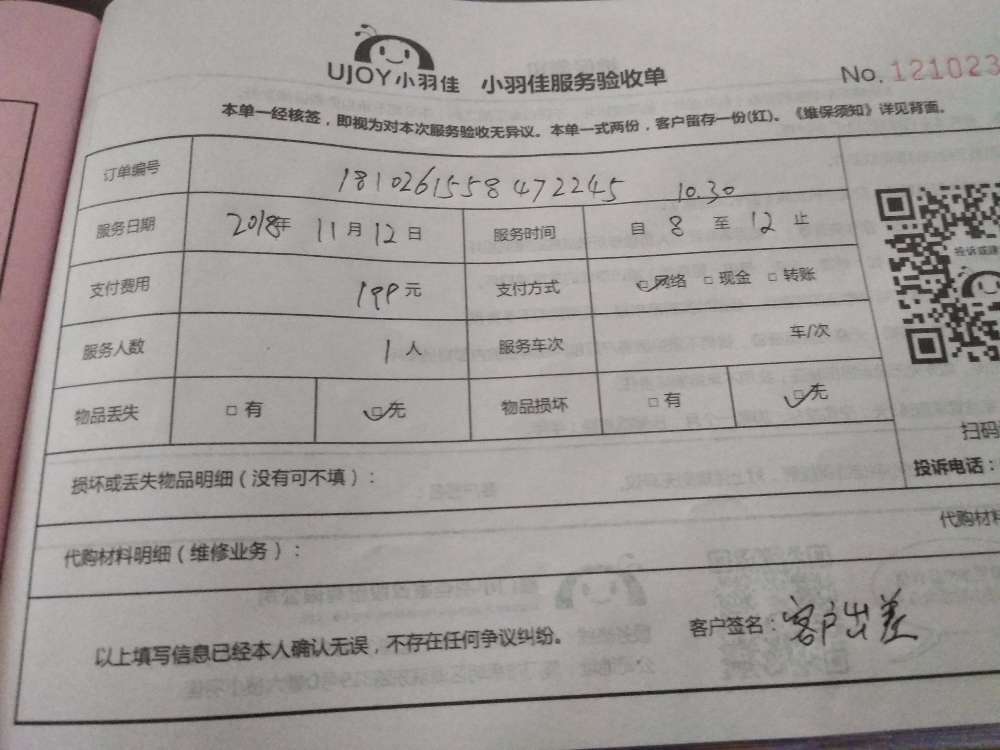 UJOY小羽佳 小羽佳服务验收单 No. 121023
本单一经核签，即视为对本次服务验收无异议。本单一式两份，客户留存一份(红)。《维保须知》详见背面。
订单编号 1810261558472245 10.30
服务日期 2018年 11月 12日 服务时间 自 8 至 12 止
投诉或建
支付费用 199元 支付方式 ☑网络 □现金 □转账
服务人数 1人 服务车次 车/次
物品丢失 □有 ☑无 物品损坏 □有 ☑无
扫码
损坏或丢失物品明细（没有可不填）： 投诉电话：
代购材料明细（维修业务）： 代购材料
以上填写信息已经本人确认无误，不存在任何争议纠纷。 客户签名：客户出差